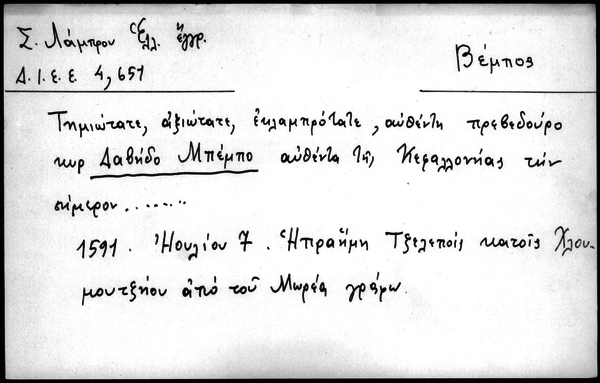 Σ. Λάμπρου Ἑλλ. ἔγγρ.
Δ.Ι.Ε.Ε. 4,651
Βέμπος
Τημιώτατε, ἀξιώτατε, ἐκλαμπρότατε, αὐθέντη πρεβεδοῦρο
κυρ Δαβήδο Μπέμπο αὐθέντα τῆς Κεφαλλονήας τὴν
σήμερον.......
1591. Ἠουλίου 7. Ἠπραήμη Τζελεποῖς κατοῖς Χλου-
μουτζήου ἀπό τοῦ Μωρέα γράφω.